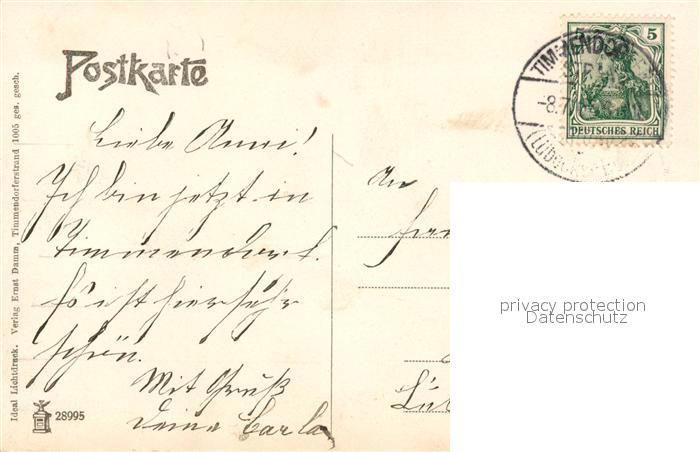 Postkarte
5
DEUTSCHES REICH
TIMMENDORF
-8.7
Liebe Anni!
Ich bin jetzt in
Timmendorf.
Es ist hier sehr
schön.
Mit Gruß
Deine Carla
An
Lüb
privacy protection
Datenschutz
Ideal Lichtdruck. Verlag Ernst Damm, Timmendorferstrand 1005 ges. gesch.
28995